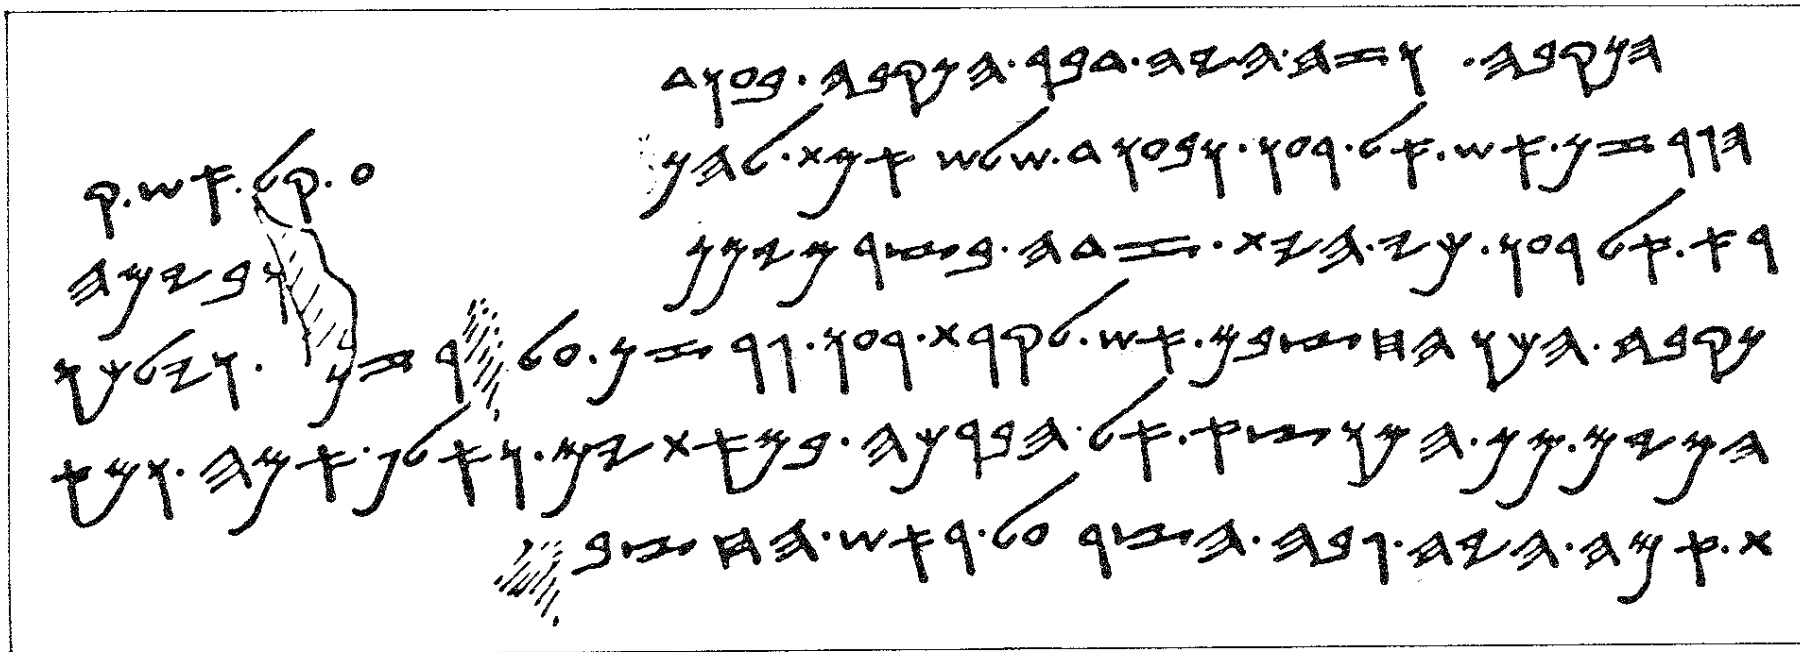 𐤄𐤍𐤒𐤁𐤄 . 𐤅𐤆𐤄 . 𐤄𐤉𐤄 . 𐤃𐤁𐤓 . 𐤄𐤍𐤒𐤁𐤄 . 𐤁𐤏𐤅𐤃
𐤄𐤂𐤓𐤆𐤍 . 𐤀𐤔 . 𐤀𐤋 . 𐤓𐤏𐤅 . 𐤅𐤁𐤏𐤅𐤃 . 𐤔𐤋𐤔 𐤀𐤌𐤕 . 𐤋𐤄𐤍 𐤏 . 𐤒𐤋 . 𐤀𐤔 . 𐤒
𐤓𐤀 . 𐤀𐤋 𐤓𐤏𐤅 . 𐤊𐤉 . 𐤄𐤉𐤕 . 𐤆𐤃𐤄 . 𐤁𐤑𐤓 𐤌𐤉𐤌𐤍 𐤅𐤁𐤉𐤌 𐤄
𐤍𐤒𐤁𐤄 . 𐤄𐤊𐤅 𐤄𐤇𐤑𐤁𐤌 . 𐤀𐤔 . 𐤋𐤒𐤓𐤕 . 𐤓𐤏𐤅 . 𐤂𐤓𐤆𐤍 . 𐤏𐤋 𐤓𐤆𐤍 . 𐤅𐤉𐤋𐤊𐤅
𐤄𐤌𐤉𐤌 . 𐤌𐤍 . 𐤄𐤌𐤅𐤑𐤀 . 𐤀𐤋 . 𐤄𐤁𐤓𐤊𐤄 . 𐤁𐤌𐤀𐤕𐤉𐤌 . 𐤅𐤀𐤋𐤐 . 𐤀𐤌𐤄 . 𐤅𐤌𐤀
𐤕 . 𐤀𐤌𐤄 . 𐤄𐤉𐤄 . 𐤂𐤁𐤄 . 𐤄𐤑𐤓 𐤏𐤋 . 𐤓𐤀𐤔 . 𐤄𐤇𐤑𐤁